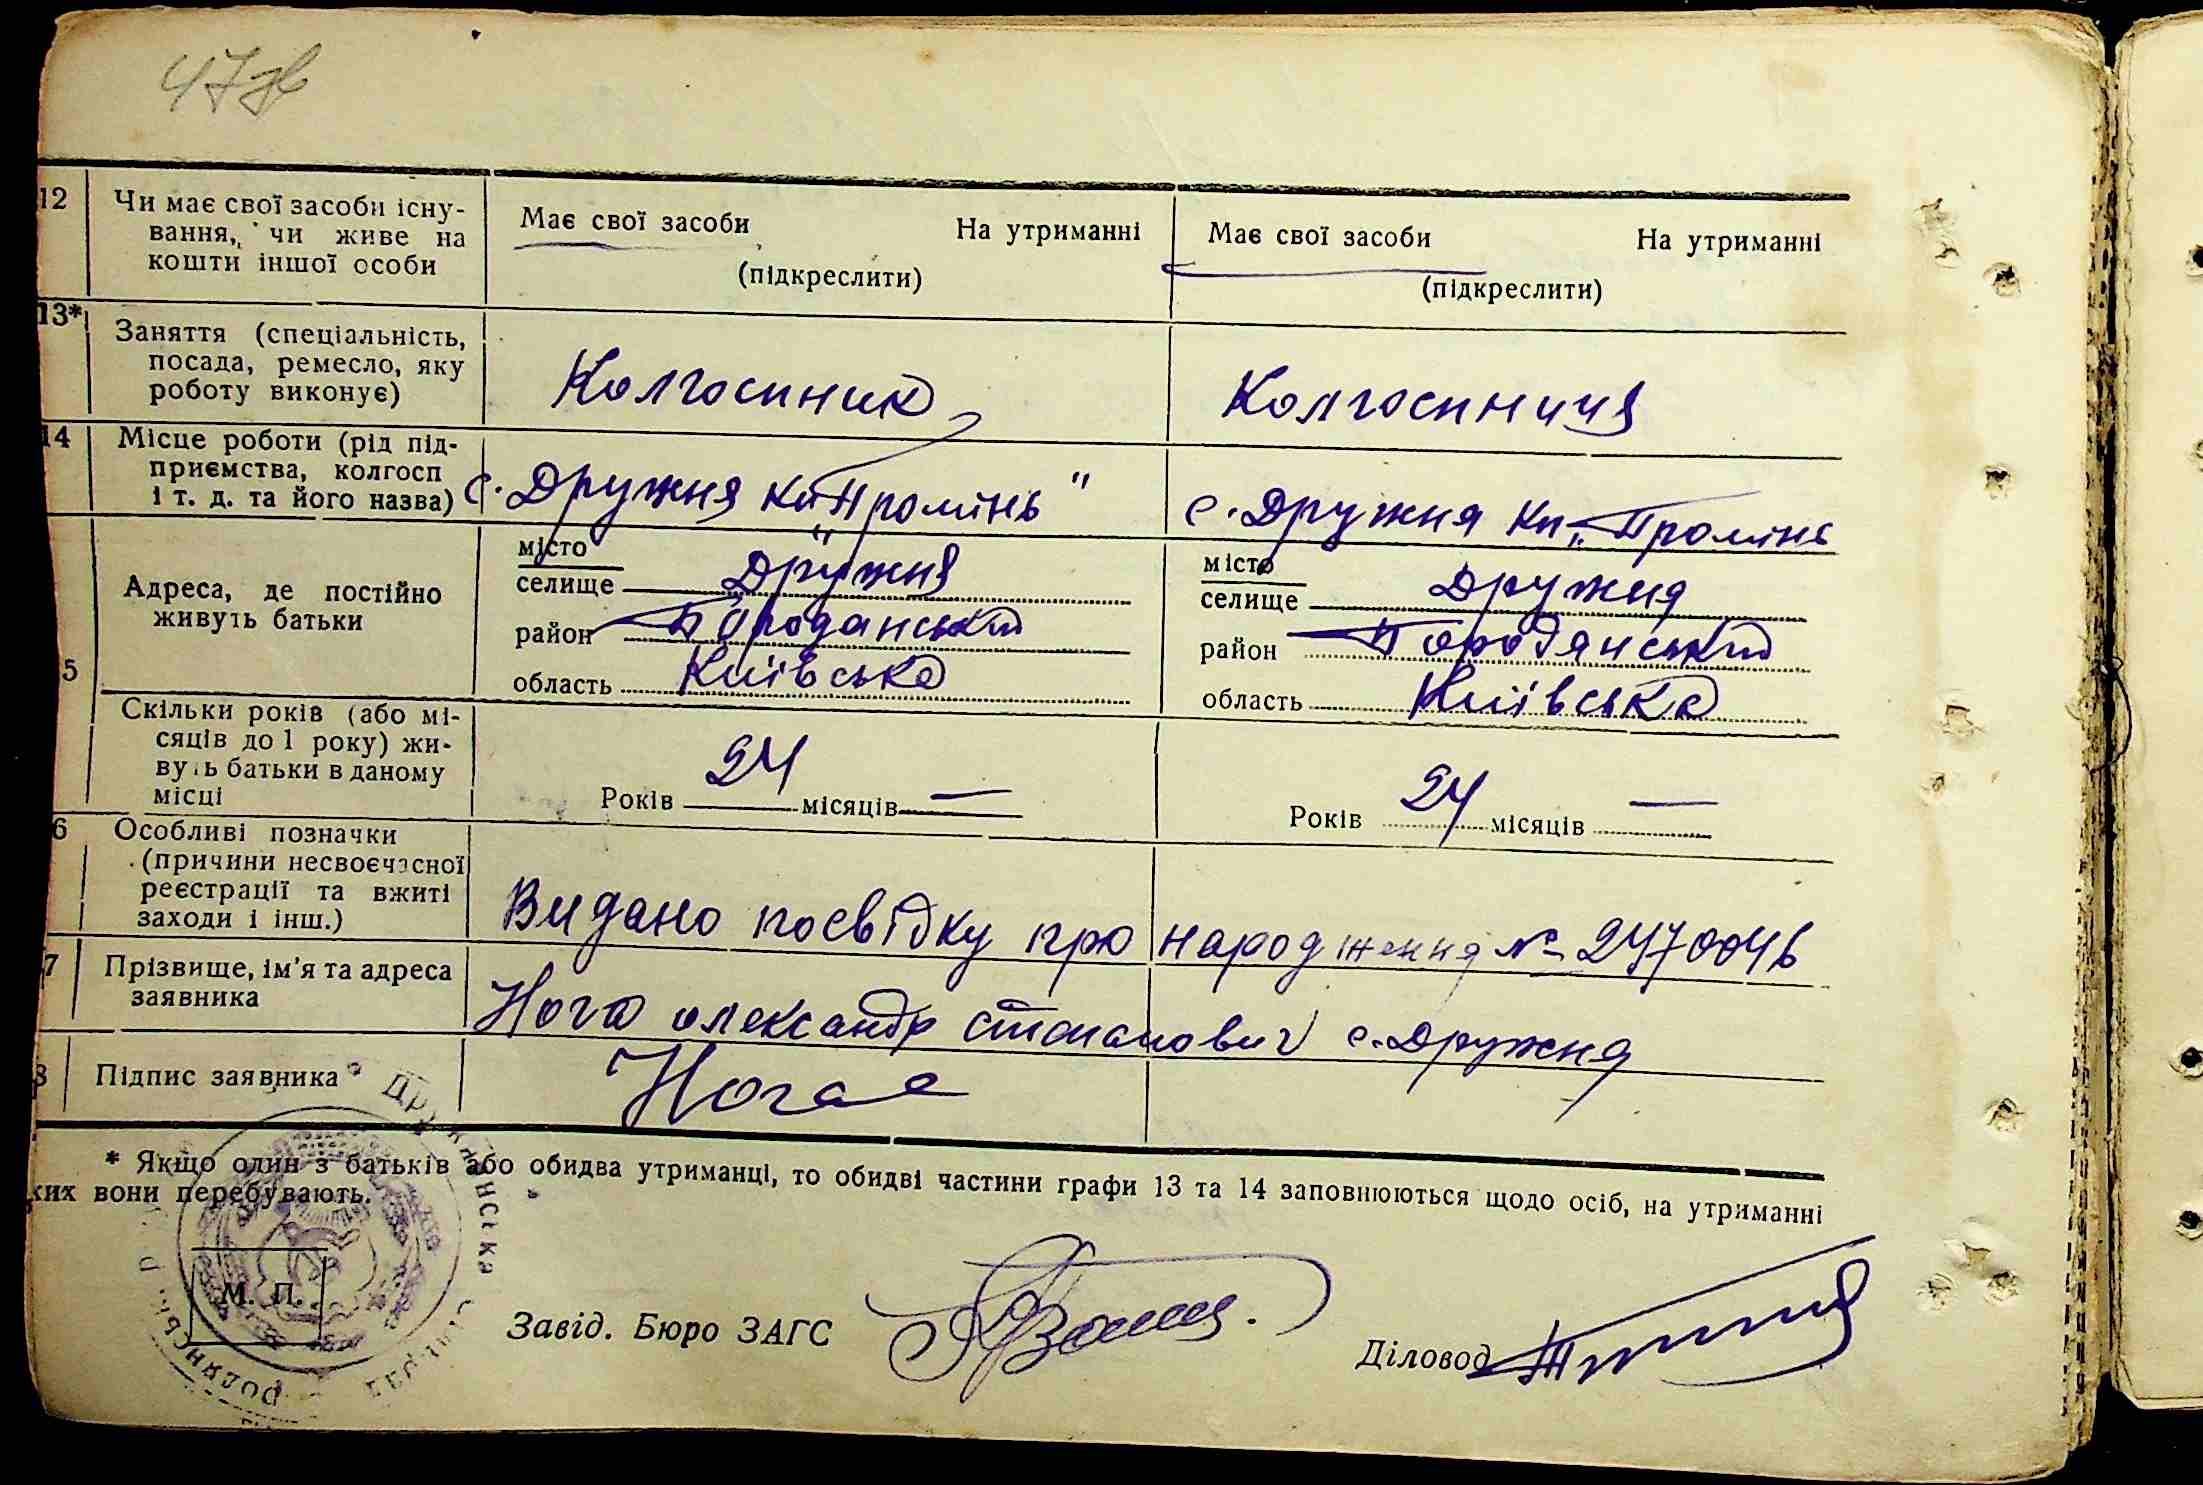 47зв
12 Чи має свої засоби існу-
вання, чи живе на
кошти іншої особи
Має свої засоби На утриманні
(підкреслити)
Має свої засоби На утриманні
(підкреслити)
13* Заняття (спеціальність,
посада, ремесло, яку
роботу виконує)
Колгоспник
Колгоспниця
14 Місце роботи (рід під-
приємства, колгосп
і т. д. та його назва)
с. Дружня Кп „Промінь"
с. Дружня Кп „Промінь
5 Адреса, де постійно
живуть батьки
місто
селище Дружня
район Бороданський
область Київська
місто
селище Дружня
район Бородянський
область Київська
Скільки років (або мі-
сяців до 1 року) жи-
вуть батьки в даному
місці
Років 24 місяців —
Років 24 місяців —
6 Особливі позначки
(причини несвоєчасної
реєстрації та вжиті
заходи і інш.)
Видано посвідку про народження № 2470046
7 Прізвище, ім'я та адреса
заявника
Нога олександр степанович с. Дружня
8 Підпис заявника
Нога
* Якщо один з батьків або обидва утриманці, то обидві частини графи 13 та 14 заповнюються щодо осіб, на утриманні
ких вони перебувають.
М. П.
Завід. Бюро ЗАГС
Діловод